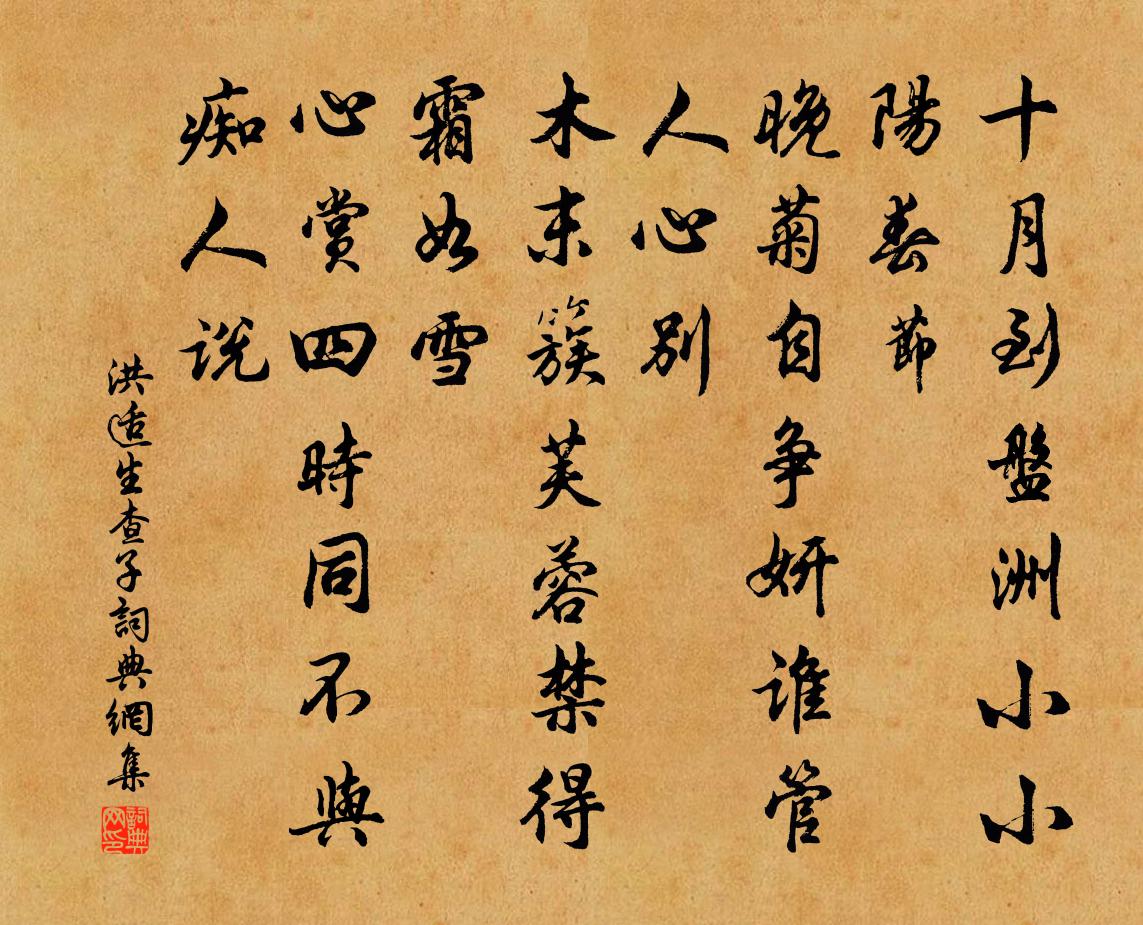 十月到盤洲小小
陽春節
晚菊自争妍誰管
人心別
木末簇芙蓉禁得
霜如雪
心賞四時同不與
痴人說
洪适生查子詞典網集
詞典网印